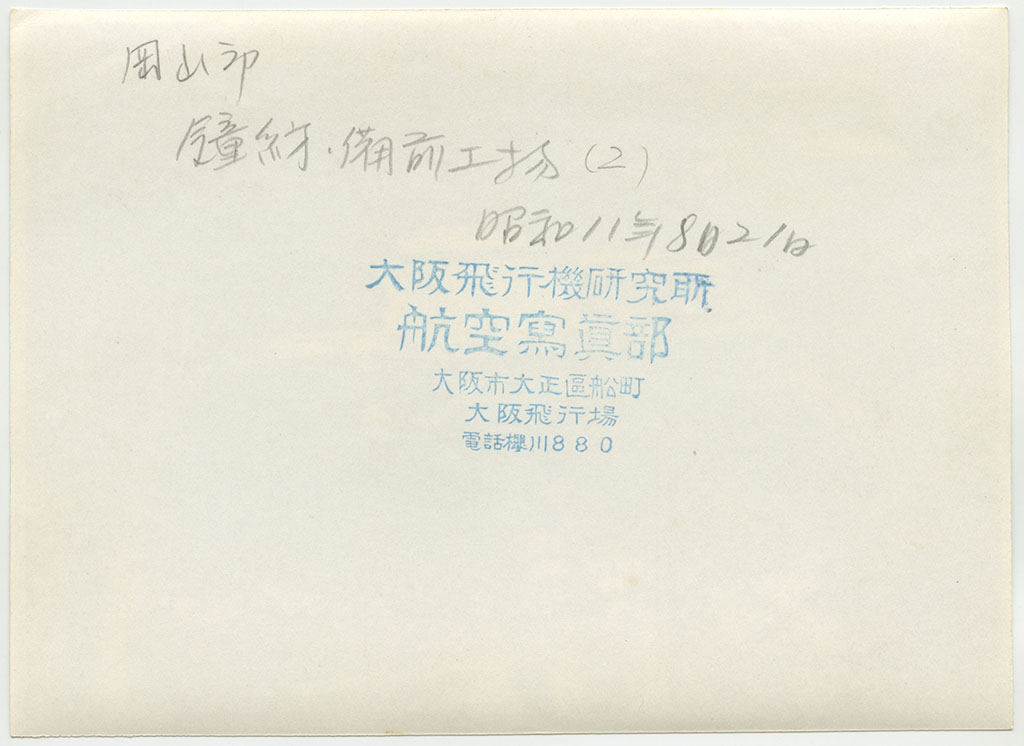 岡山市
鐘紡・備前工場(2)
昭和11年8月21日
大阪飛行機研究所
航空寫眞部
大阪市大正區船町
大阪飛行場
電話櫻川880